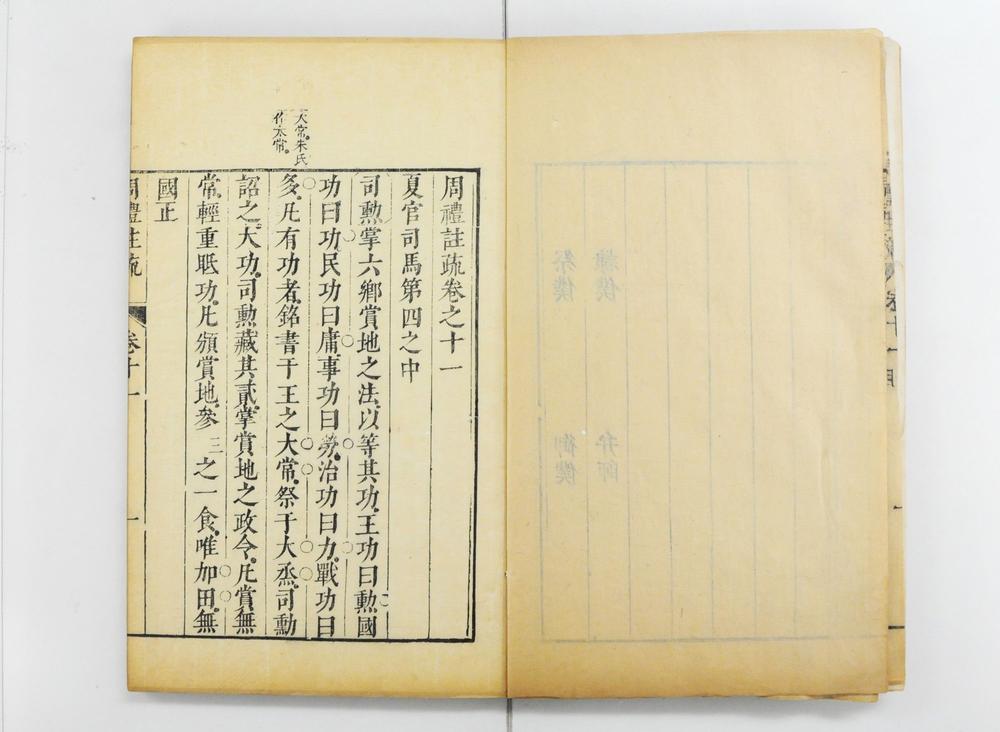 大常。朱氏
作太常。
周禮註疏卷之十一
夏官司馬第四之中
司勲掌六鄉賞地之法。以等其功。王功曰勲。國
功曰功。民功曰庸。事功曰勞。治功曰力。戰功曰
多。凡有功者。銘書于王之大常。祭于大烝。司勲
詔之。大功。司勲藏其貳。掌賞地之政令。凡賞無
常。輕重眡功。凡頒賞地。參三之一食。唯加田。無
國正
周禮註疏 卷十一 一